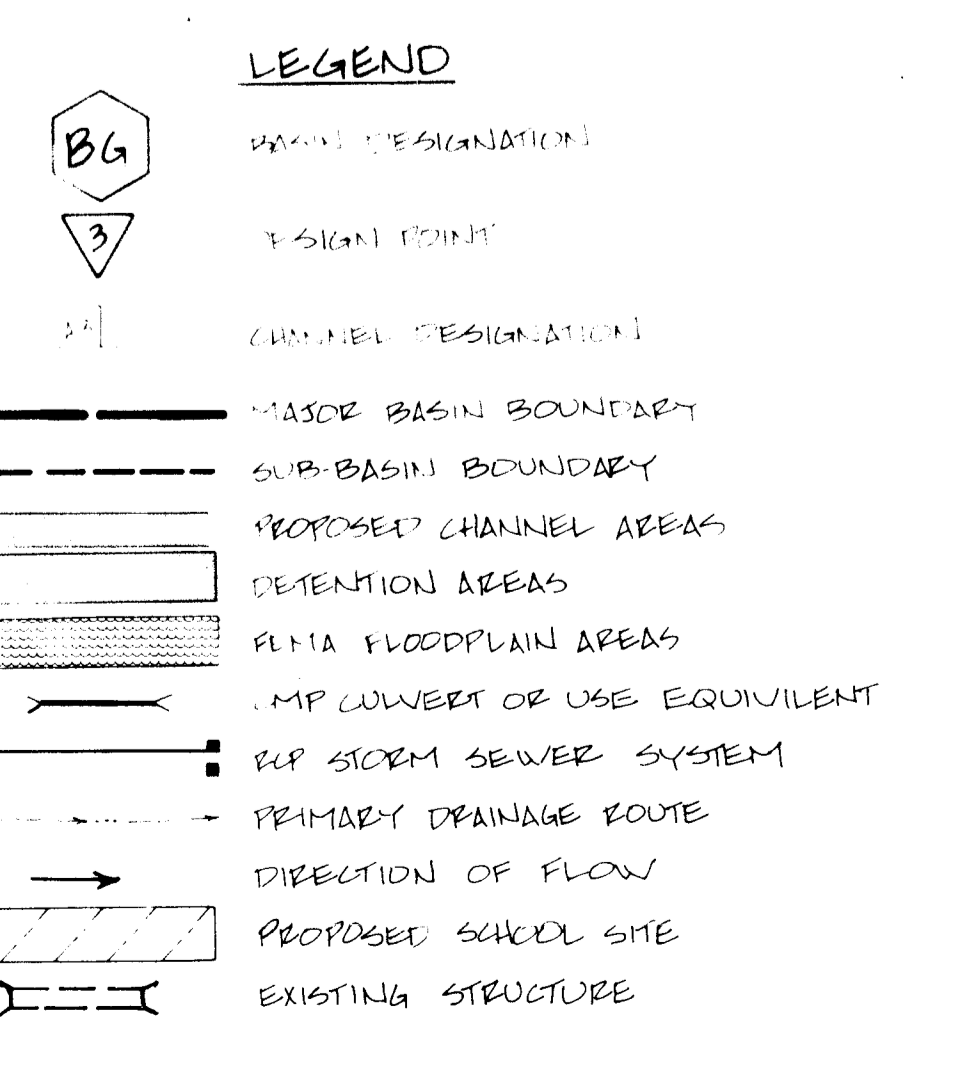 LEGEND
BG BASIN DESIGNATION
3 DESIGN POINT
CHANNEL DESIGNATION
MAJOR BASIN BOUNDARY
SUB-BASIN BOUNDARY
PROPOSED CHANNEL AREAS
DETENTION AREAS
FEMA FLOODPLAIN AREAS
CMP CULVERT OR USE EQUIVILENT
RCP STORM SEWER SYSTEM
PRIMARY DRAINAGE ROUTE
DIRECTION OF FLOW
PROPOSED SCHOOL SITE
EXISTING STRUCTURE